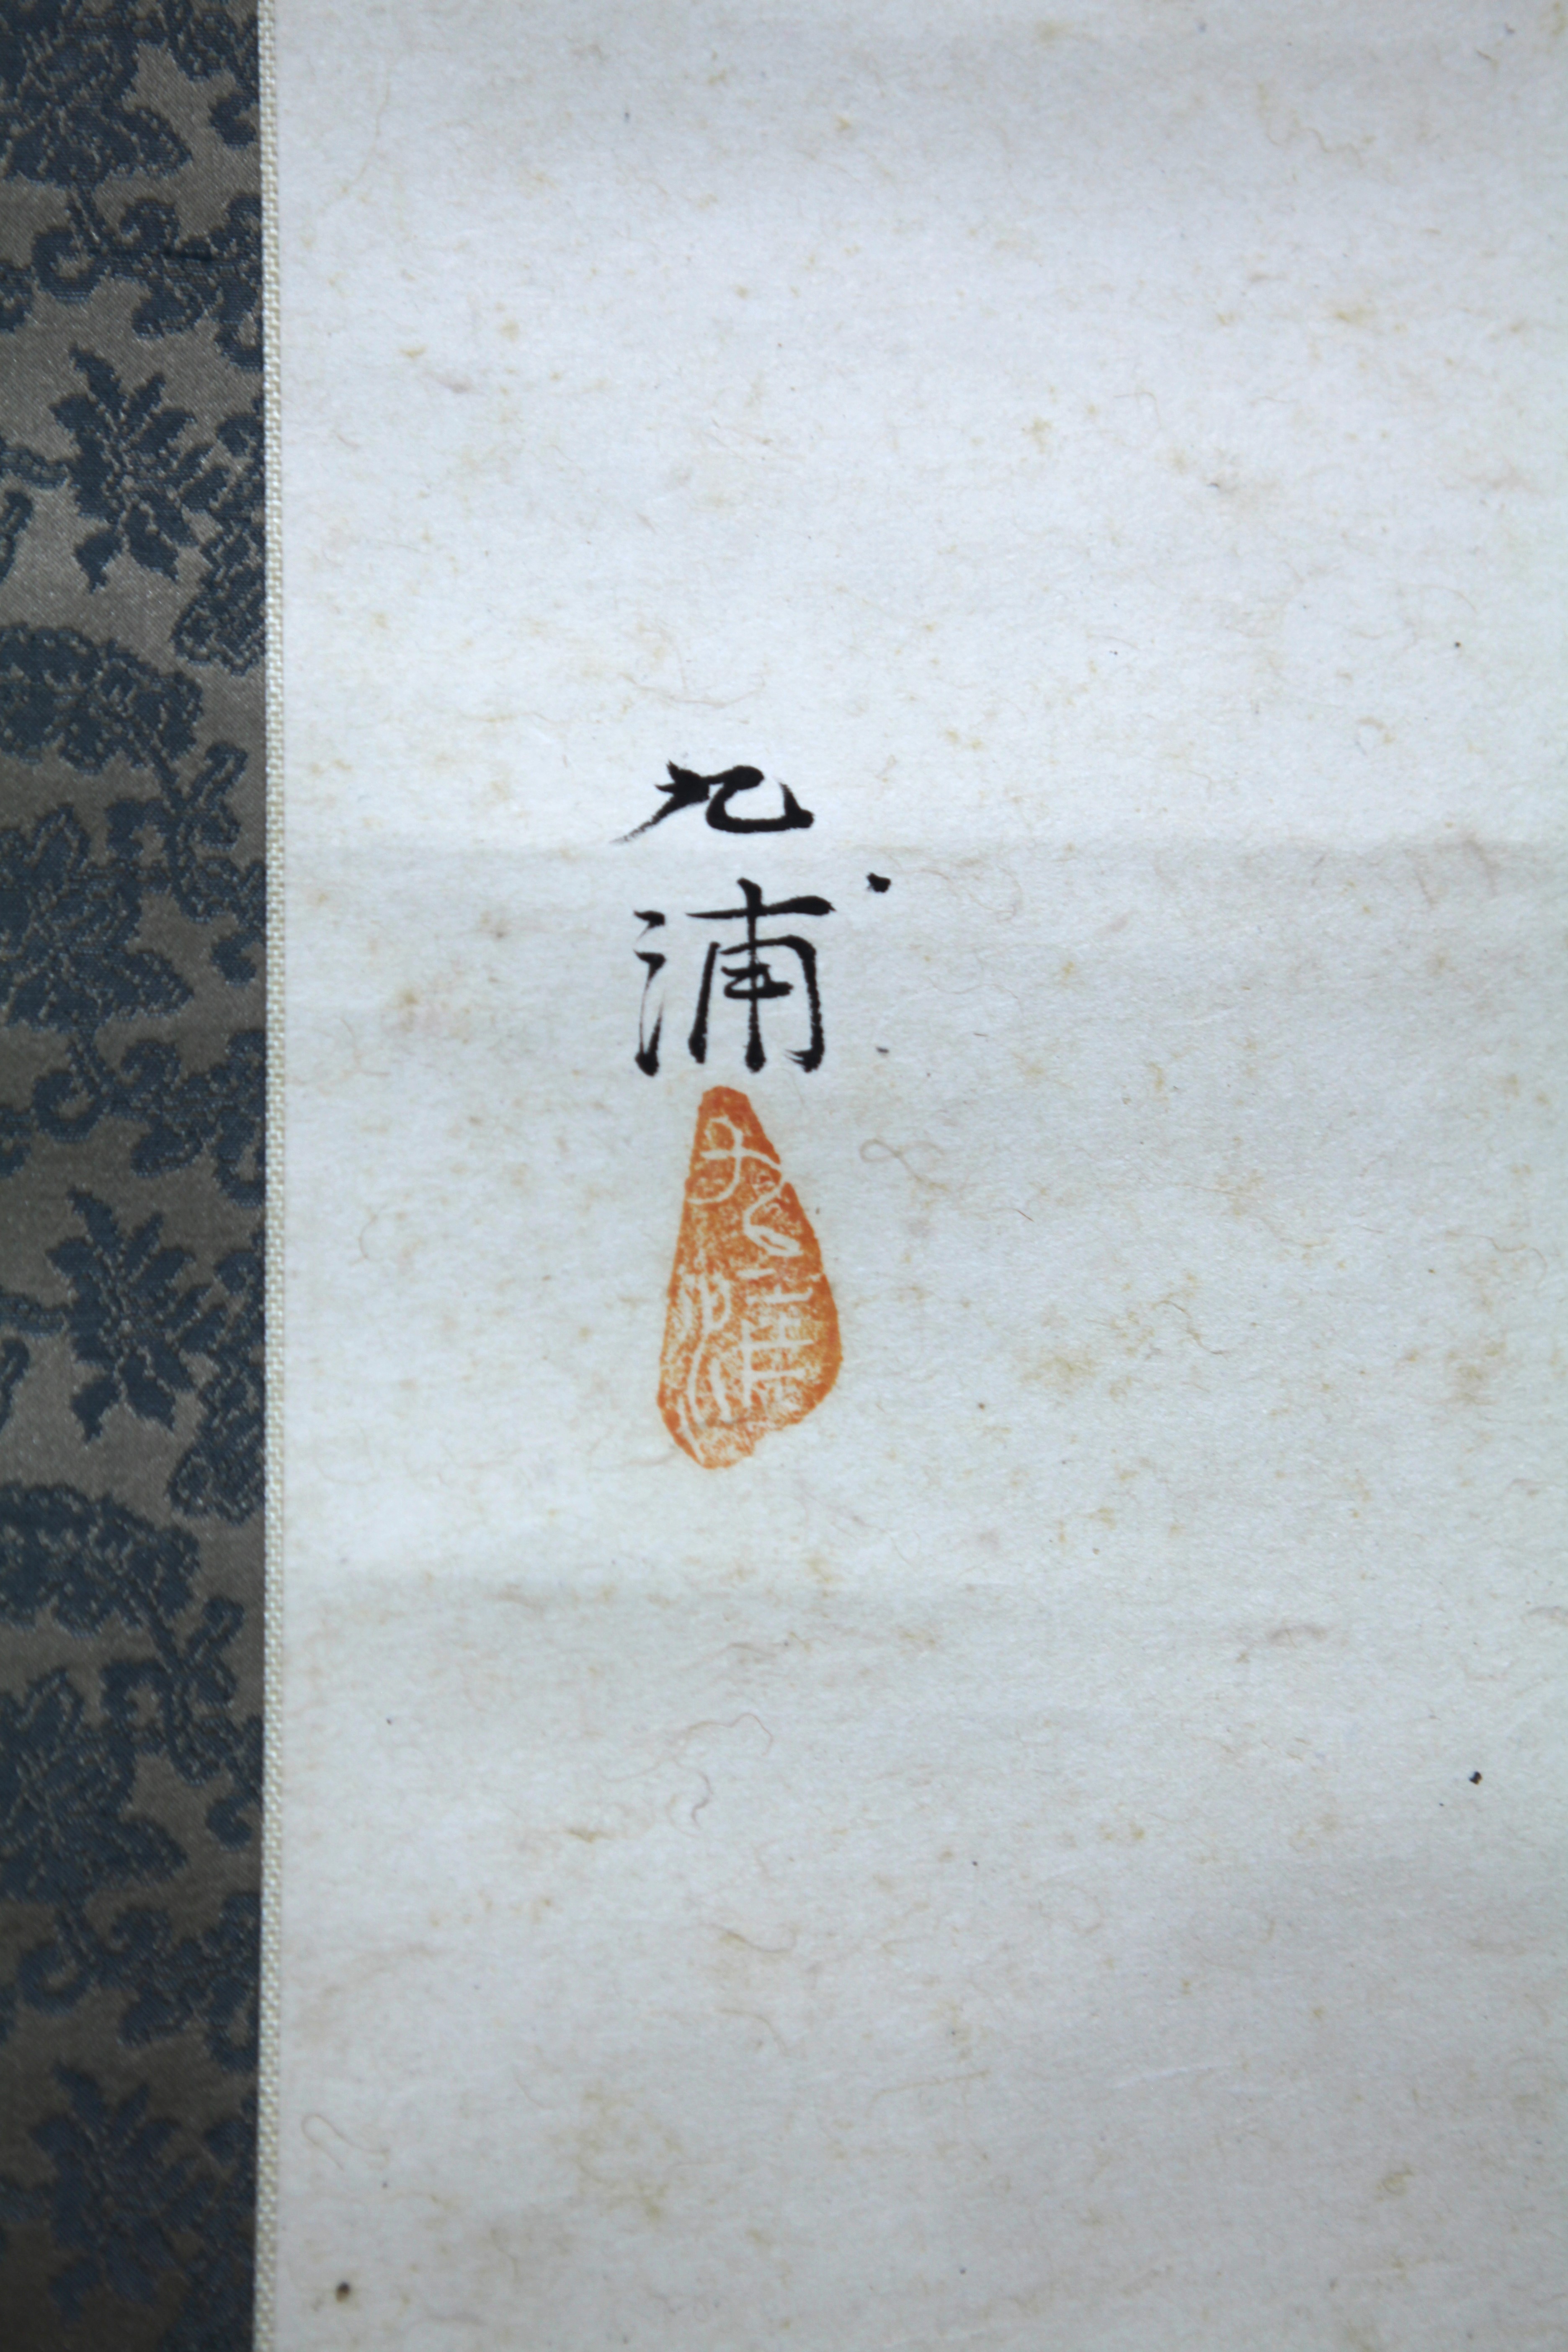 九浦
九浦